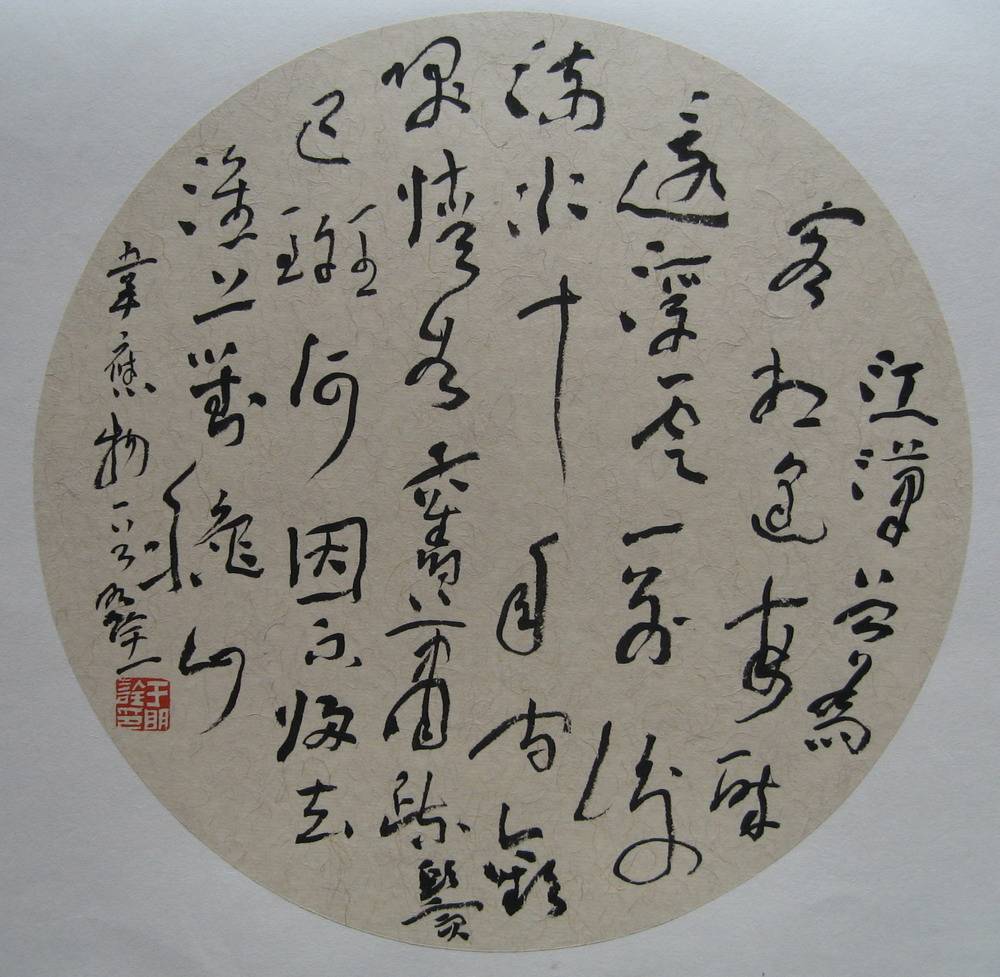 江漢曾為
客相逢每醉
還浮雲一別後
流水十年間歡
咲情如舊蕭疏鬢
已斑何因不歸去
淮上對龝山
韋應物一首
于明詮印